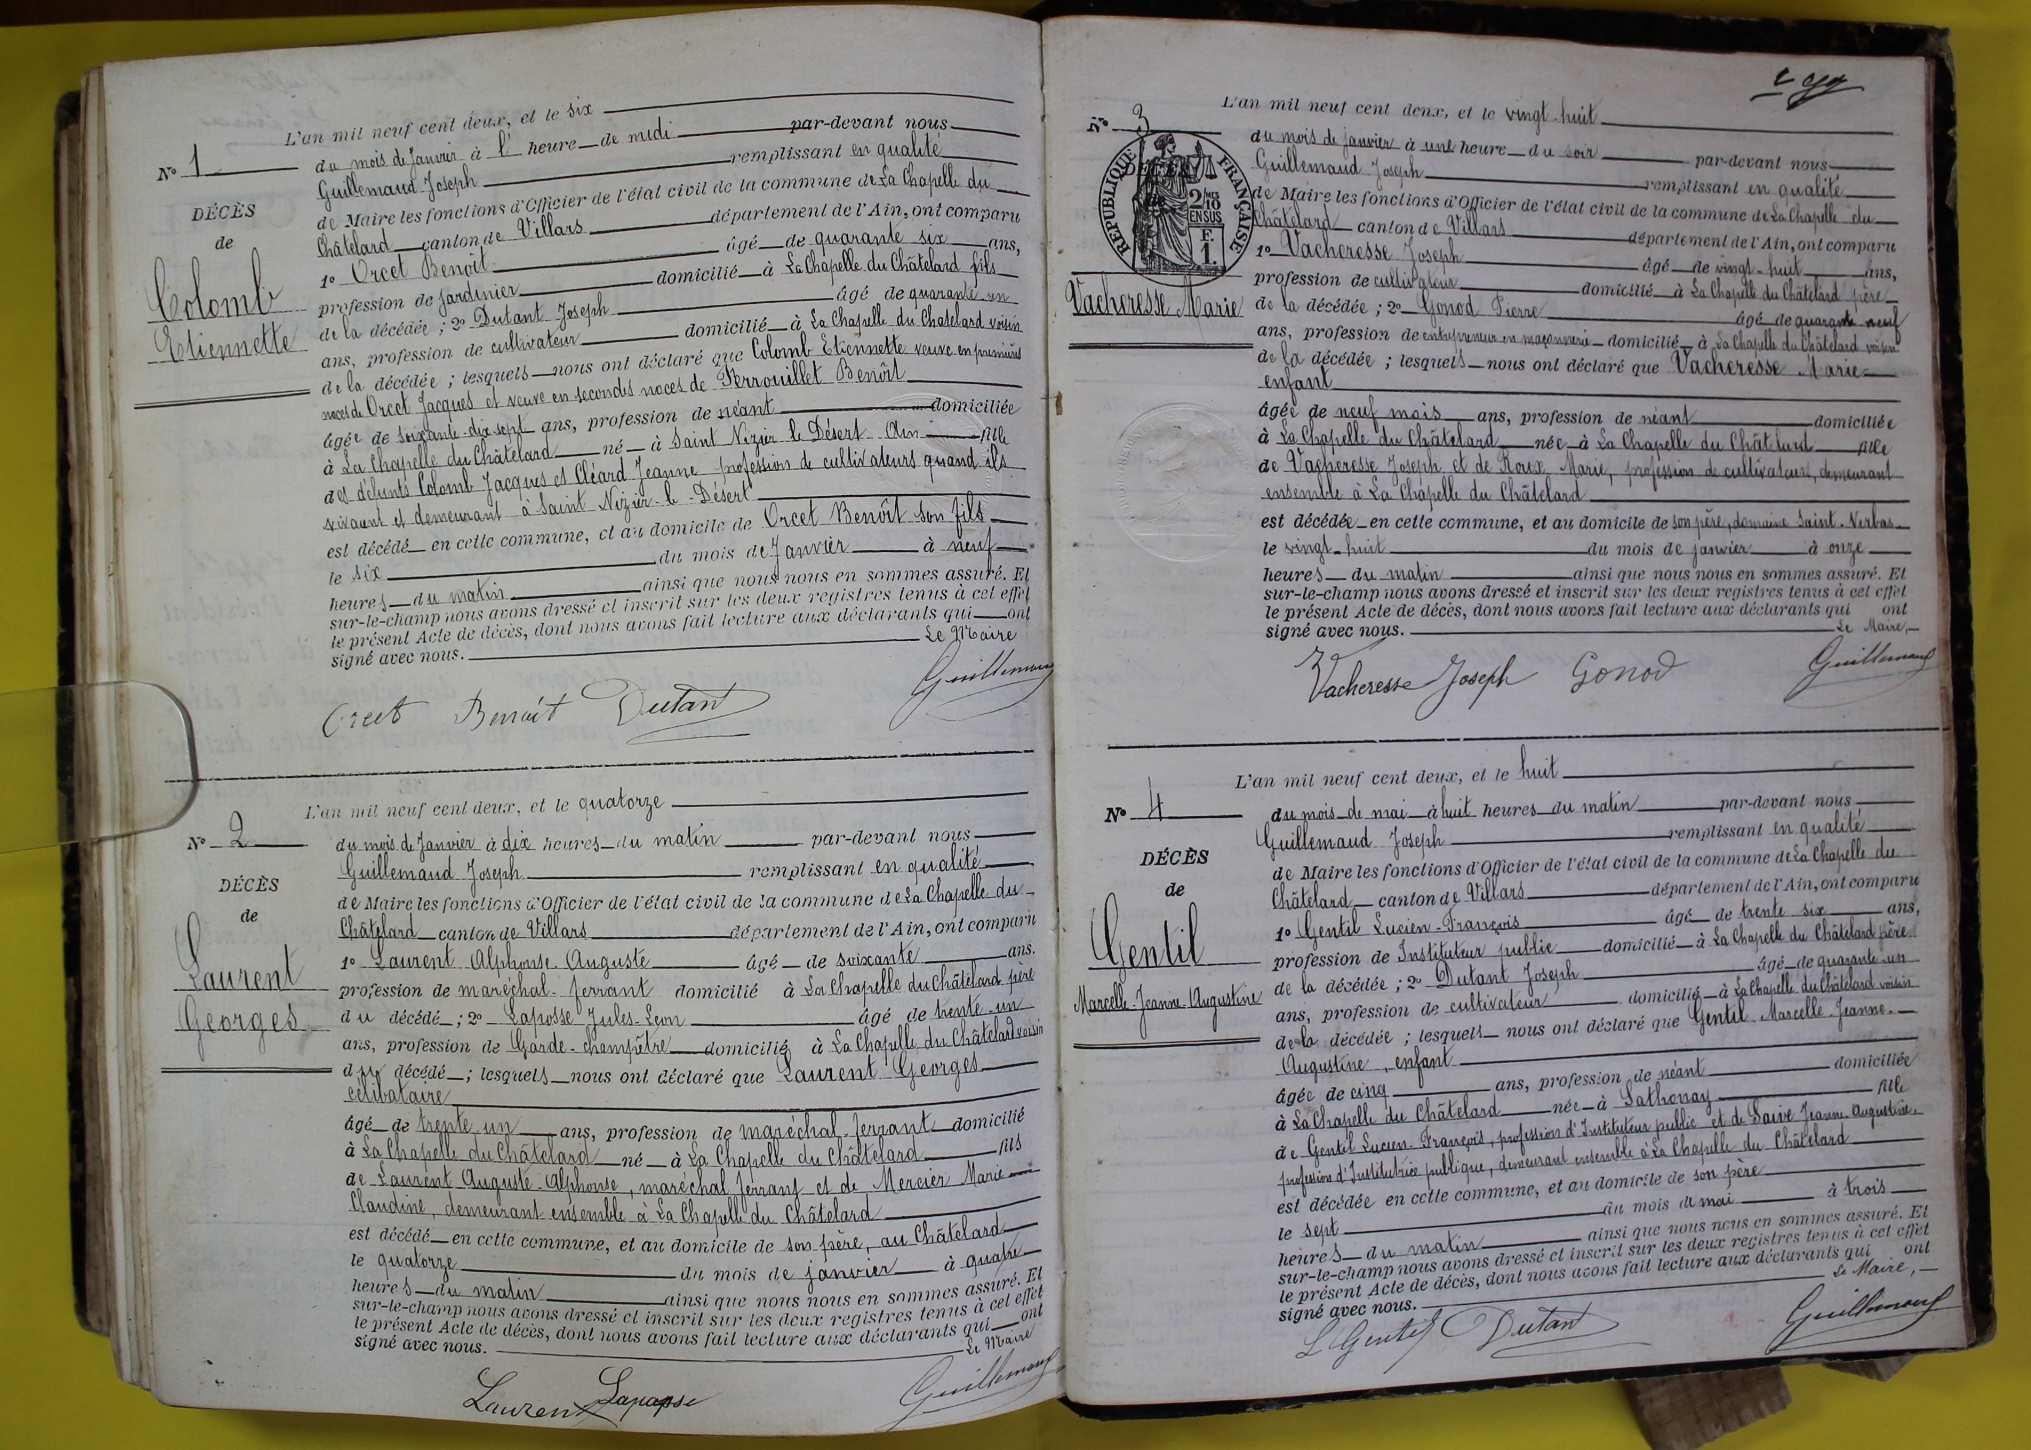 L'an mil neuf cent deux, et le six
N° 1
du mois de Janvier à l' heure de midi par-devant nous
Guillemaud Joseph remplissant en qualité
DÉCÈS
de Maire les fonctions d'Officier de l'état civil de la commune de La Chapelle du
de
Châtelard canton de Villars département de l'Ain, ont comparu
Colomb
1° Orcet Benoît âgé de quarante six ans,
profession de jardinier domicilié à La Chapelle du Châtelard fils
Etiennette
de la décédée ; 2° Dutant Joseph âgé de quarante un
ans, profession de cultivateur domicilié à La Chapelle du Chatelard voisin
de la décédée ; lesquels nous ont déclaré que Colomb Etiennette veuve en premières
noces de Orcet Jacques et veuve en secondes noces de Perrouillet Benoît
âgée de soixante-dix sept ans, profession de néant domiciliée
à La Chapelle du Châtelard né à Saint Nizier le Désert Ain fille
des défunts Colomb Jacques et Cléard Jeanne profession de cultivateurs quand ils
vivaient et demeurant à Saint Nizier-le-Désert
est décédé en cette commune, et au domicile de Orcet Benoît son fils
le six du mois de Janvier à neuf
heures du matin ainsi que nous nous en sommes assuré. Et
sur-le-champ nous avons dressé et inscrit sur les deux registres tenus à cet effet
le présent Acte de décès, dont nous avons fait lecture aux déclarants qui ont
signé avec nous. Le Maire
Orcet Benoit Dutant Guillemaud
L'an mil neuf cent deux, et le quatorze
N° 2
du mois de Janvier à dix heures du matin par-devant nous
Guillemaud Joseph remplissant en qualité
DÉCÈS
de Maire les fonctions d'Officier de l'état civil de la commune de La Chapelle du
de
Châtelard canton de Villars département de l'Ain, ont comparu
Laurent
1° Laurent Alphonse Auguste âgé de soixante ans.
profession de maréchal-ferrant domicilié à La Chapelle du Châtelard père
Georges
du décédé ; 2° Laposse Jules-Leon âgé de trente-un
ans, profession de Garde-champêtre domicilié à La Chapelle du Châtelard voisin
du décédé ; lesquels nous ont déclaré que Laurent Georges
célibataire
âgé de trente-un ans, profession de maréchal-ferrant domicilié
à La Chapelle du Châtelard né à La Chapelle du Châtelard fils
de Laurent Auguste-Alphonse, maréchal ferrant et de Mercier Marie
Claudine, demeurant ensemble à La Chapelle du Châtelard
est décédé en cette commune, et au domicile de son père, au Châtelard
le quatorze du mois de janvier à quatre
heures du matin ainsi que nous nous en sommes assuré. Et
sur-le-champ nous avons dressé et inscrit sur les deux registres tenus à cet effet
le présent Acte de décès, dont nous avons fait lecture aux déclarants qui ont
signé avec nous. Le Maire
Laurent Guillemaud
L'an mil neuf cent deux, et le vingt-huit
N° 3
du mois de janvier à une heure du soir par-devant nous
Guillemaud Joseph remplissant en qualité
RÉPUBLIQUE FRANÇAISE
DÉCÈS
de
2/10 EN SUS
F. 1.
de Maire les fonctions d'Officier de l'état civil de la commune de La Chapelle du
Châtelard canton de Villars département de l'Ain, ont comparu
1° Vacheresse Joseph âgé de vingt-huit ans,
profession de cultivateur domicilié à La Chapelle du Châtelard père
Vacheresse Marie
de la décédée ; 2° Gonod Pierre âgé de quarante neuf
ans, profession de entrepreneur en maçonnerie domicilié à La Chapelle du Châtelard voisin
de la décédée ; lesquels nous ont déclaré que Vacheresse Marie
enfant
âgée de neuf mois ans, profession de néant domiciliée
à La Chapelle du Châtelard née à La Chapelle du Châtelard fille
de Vacheresse Joseph et de Roux Marie, profession de cultivateurs, demeurant
ensemble à La Chapelle du Châtelard
est décédée en cette commune, et au domicile de son père, domaine Saint-Nerbas
le vingt-huit du mois de janvier à onze
heures du matin ainsi que nous nous en sommes assuré. Et
sur-le-champ nous avons dressé et inscrit sur les deux registres tenus à cet effet
le présent Acte de décès, dont nous avons fait lecture aux déclarants qui ont
signé avec nous. Le Maire,
Vacheresse Joseph Gonod Guillemaud
L'an mil neuf cent deux, et le huit
N° 4
du mois de mai à huit heures du matin par-devant nous
Guillemaud Joseph remplissant en qualité
DÉCÈS
de Maire les fonctions d'Officier de l'état civil de la commune de La Chapelle du
de
Châtelard canton de Villars département de l'Ain, ont comparu
Gentil
1° Gentil Lucien-François âgé de trente six ans,
profession de Instituteur public domicilié à La Chapelle du Châtelard père
Marcelle-Jeanne-Augustine
de la décédée ; 2° Dutant Joseph âgé de quarante-un
ans, profession de cultivateur domicilié à La Chapelle du Châtelard voisin
de la décédée ; lesquels nous ont déclaré que Gentil Marcelle-Jeanne-
Augustine, enfant
âgée de cinq ans, profession de néant domiciliée
à La Chapelle du Châtelard née à Sathonay fille
de Gentil Lucien-François, profession d'Instituteur public et de Saive Jeanne Augustine,
profession d'Institutrice publique, demeurant ensemble à La Chapelle du Châtelard
est décédée en cette commune, et au domicile de son père
le sept du mois de mai à trois
heures du matin ainsi que nous nous en sommes assuré. Et
sur-le-champ nous avons dressé et inscrit sur les deux registres tenus à cet effet
le présent Acte de décès, dont nous avons fait lecture aux déclarants qui ont
signé avec nous. Le Maire,
L Gentil Dutant Guillemaud